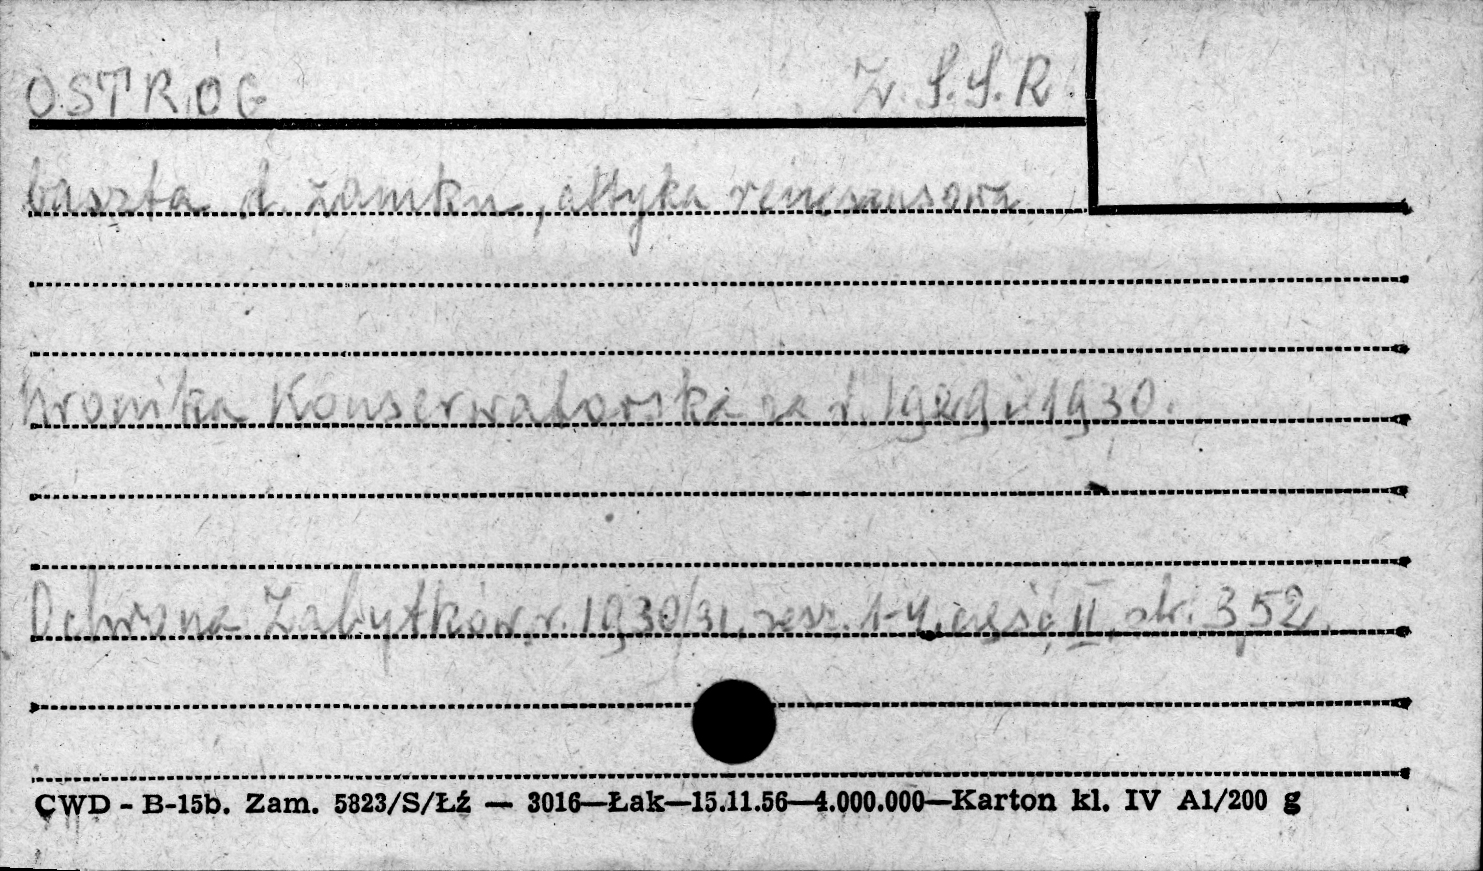 OSTRÓG Z.S.S.R.
baszta d. zamku, attyka renesansowa
Kronika Konserwatorska za r. 1929 i 1930.
Ochrona Zabytków, r. 1930/31, zesz. 1-4, część II, str. 352.
CWD - B-15b. Zam. 5823/S/Łź — 3016—Łak—15.11.56—4.000.000—Karton kl. IV A1/200 g